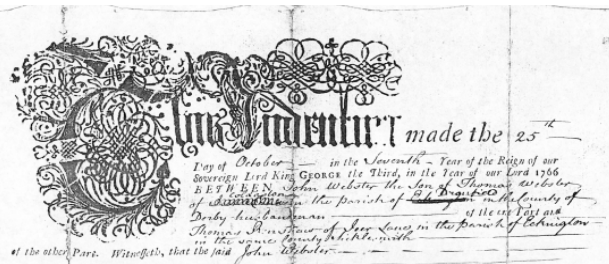 This Indenture made the 25th
Day of October in the Seventh Year of the Reign of our
Sovereign Lord King GEORGE the Third, in the Year of our Lord 1766
BETWEEN John Webster the Son of Thomas Webster
of in the Parish of Dronfield in the County of
Derby husbandman of the one Part and
Thomas of Lane in the Parish of Eckington
in the same County Sicklesmith
of the other Part. Witnesseth, that the said John Webster